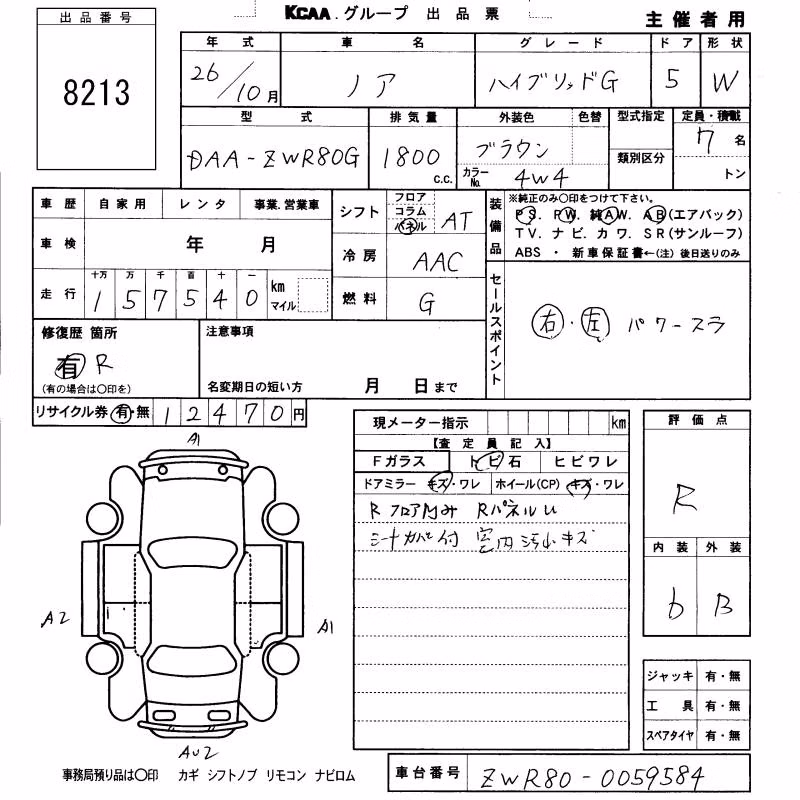 KCAA.グループ 出品票
主催者用
出品番号
8213
年式 車名 グレード ドア 形状
26/10月 ノア ハイブリッドG 5 W
型式 排気量 外装色 色替 型式指定 定員・積載
DAA-ZWR80G 1800 c.c. ブラウン 7名
カラーNo. 4W4 類別区分 トン
車歴 自家用 レンタ 事業.営業車
車検 年 月
走行 十万 万 千 百 十 一
157540 km マイル
シフト フロア コラム パネル AT
冷房 AAC
燃料 G
装備品 ※純正のみ〇印をつけて下さい。
PS. PW. 純AW. AB(エアバック)
TV. ナビ. カワ. SR(サンルーフ)
ABS ・ 新車保証書←(注) 後日送りのみ
セールスポイント
右・左 パワースラ
修復歴 箇所
有 R
(有の場合は〇印を)
注意事項
名変期日の短い方 月 日まで
リサイクル券 有・無 12470円
現メーター指示 km
【査定員記入】
Fガラス トビ石 ヒビワレ
ドアミラー キズ・ワレ ホイール(CP) キズ・ワレ
R フロア凹み RパネルU
シートカバー付 室内汚小キズ
評価点
R
内装 外装
b B
ジャッキ 有・無
工具 有・無
スペアタイヤ 有・無
A1
A2
A1
AU2
事務局預り品は〇印 カギ シフトノブ リモコン ナビロム
車台番号 ZWR80-0059584